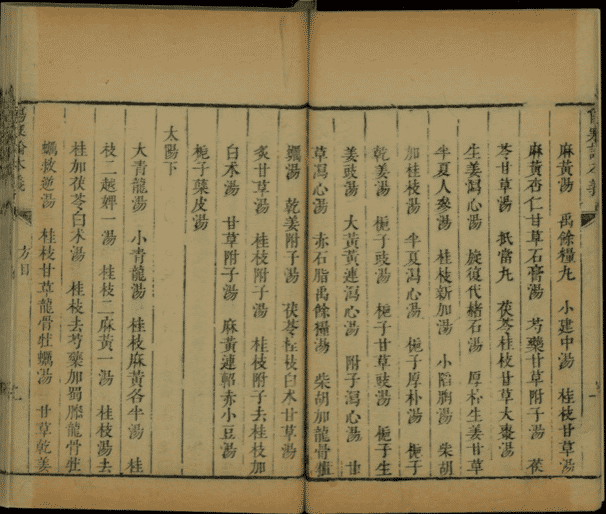 麻黃湯 禹餘糧丸 小建中湯 桂枝甘草湯
麻黃杏仁甘草石膏湯 芍藥甘草附子湯 茯
苓甘草湯 抵當丸 茯苓桂枝甘草大棗湯
生姜瀉心湯 旋復代赭石湯 厚朴生姜甘草
半夏人參湯 桂枝新加湯 小陷胸湯 柴胡
加桂枝湯 半夏瀉心湯 梔子厚朴湯 梔子
乾姜湯 梔子豉湯 梔子甘草豉湯 梔子生
姜豉湯 大黃黃連瀉心湯 附子瀉心湯 甘
草瀉心湯 赤石脂禹餘糧湯 柴胡加龍骨牡
蠣湯 乾姜附子湯 茯苓桂枝白术甘草湯
炙甘草湯 桂枝附子湯 桂枝附子去桂枝加
白术湯 甘草附子湯 麻黃連軺赤小豆湯
梔子蘗皮湯
太陽下
大青龍湯 小青龍湯 桂枝麻黃各半湯 桂
枝二越婢一湯 桂枝二麻黃一湯 桂枝湯去
桂加茯苓白术湯 桂枝去芍藥加蜀膝龍骨牡
蠣救逆湯 桂枝甘草龍骨牡蠣湯 甘草乾姜
方目